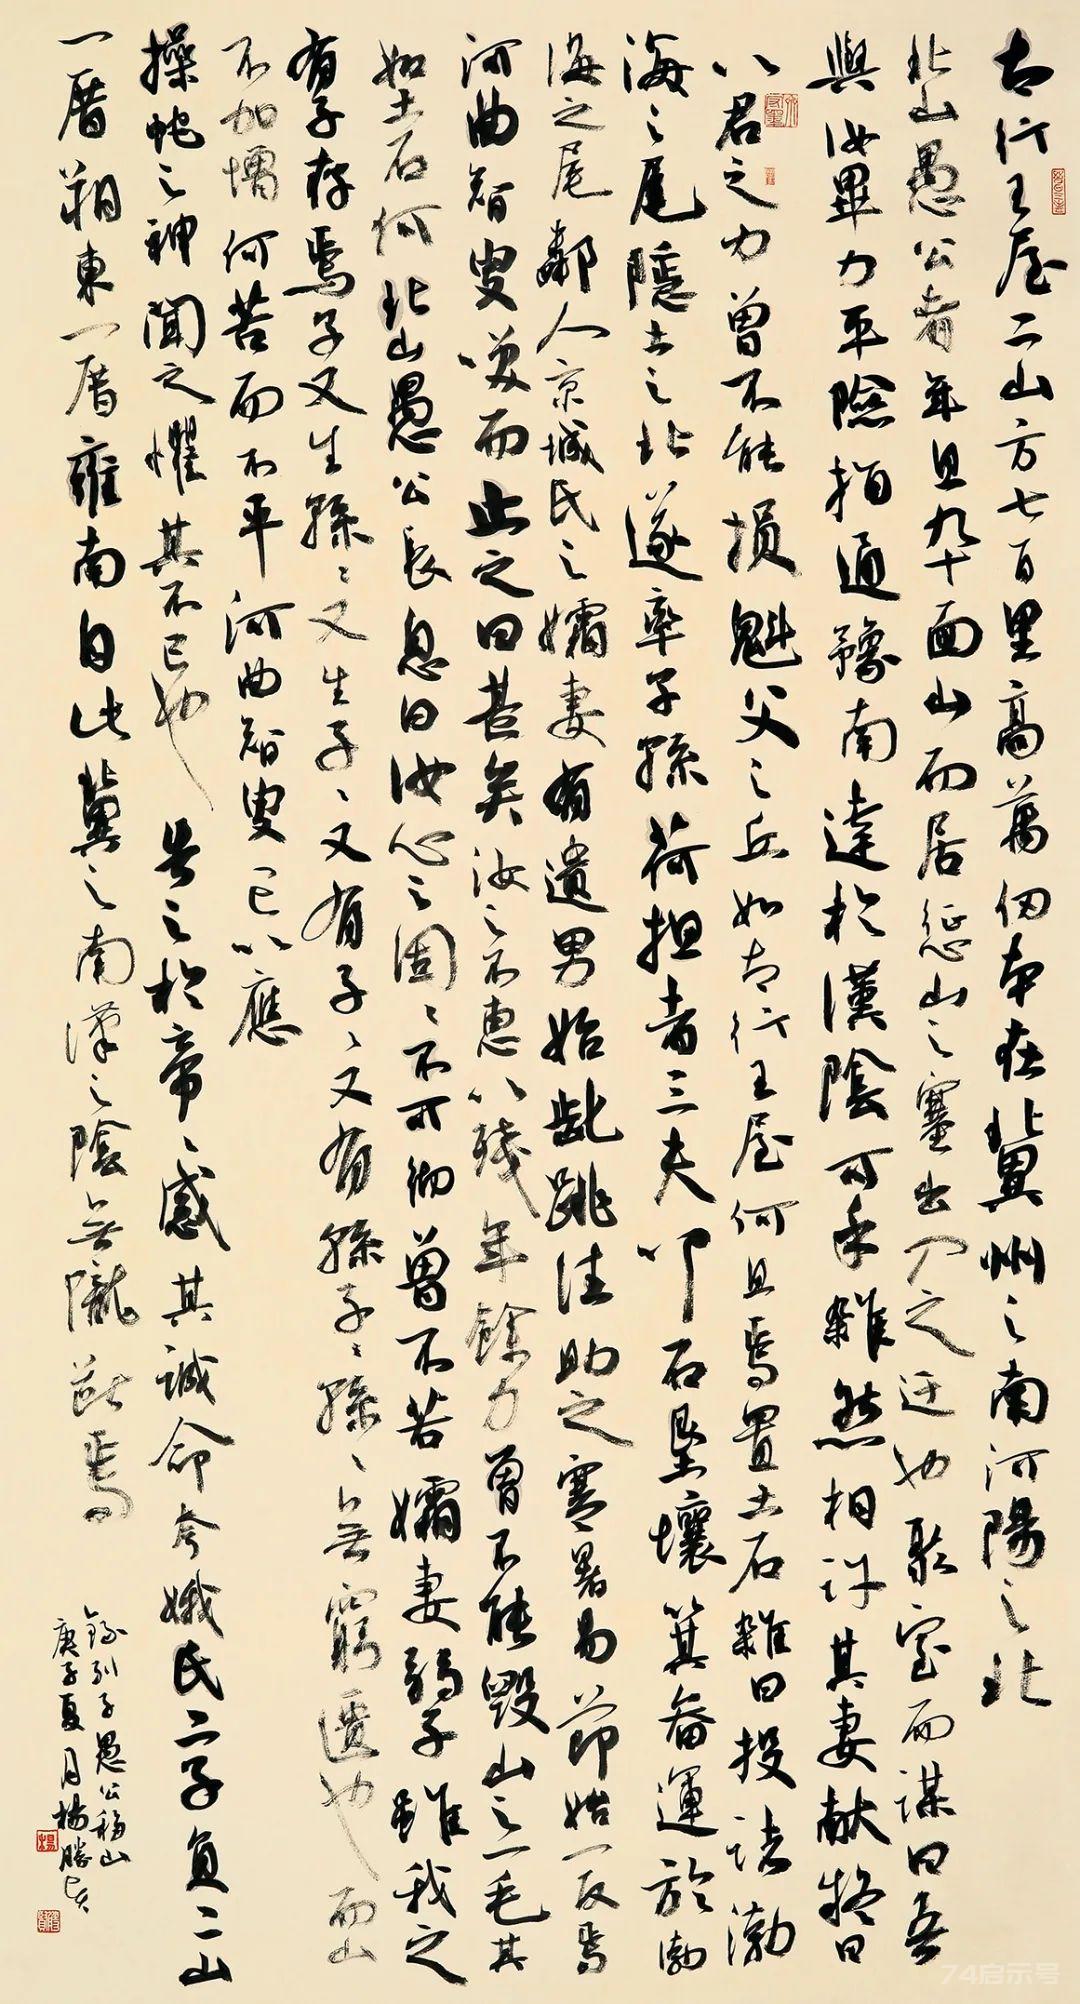 太行王屋二山方七百里高萬仞本在冀州之南河陽之北
北山愚公者年且九十面山而居懲山之塞出入之迂也聚室而謀曰吾
與汝畢力平險指通豫南達於漢陰可乎雜然相許其妻献疑曰
以君之力曾不能損魁父之丘如太行王屋何且焉置土石雜曰投諸渤
海之尾隱土之北遂率子孫荷担者三夫叩石墾壤箕畚運於渤
海之尾鄰人京城氏之孀妻有遺男始龀跳往助之寒暑易節始一反焉
河曲智叟笑而止之曰甚矣汝之不惠以殘年餘力曾不能毀山之一毛其
如土石何北山愚公長息曰汝心之固〻不可徹曾不若孀妻弱子雖我之
有子存焉子又生孫〻又生子〻又有子〻又有孫子〻孫〻無窮匱也而山
不加增何苦而不平河曲智叟亡以應
操蛇之神聞之懼其不已也告之於帝〻感其誠命夸娥氏二子負二山
一厝朔東一厝雍南自此冀之南漢之陰無隴斷焉
錄列子愚公移山
庚子夏月楊勝
74启示号